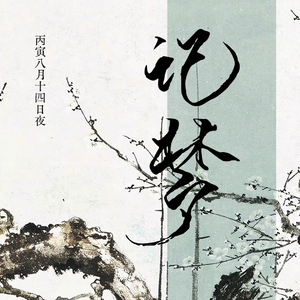 丙寅八月十四日夜
记梦